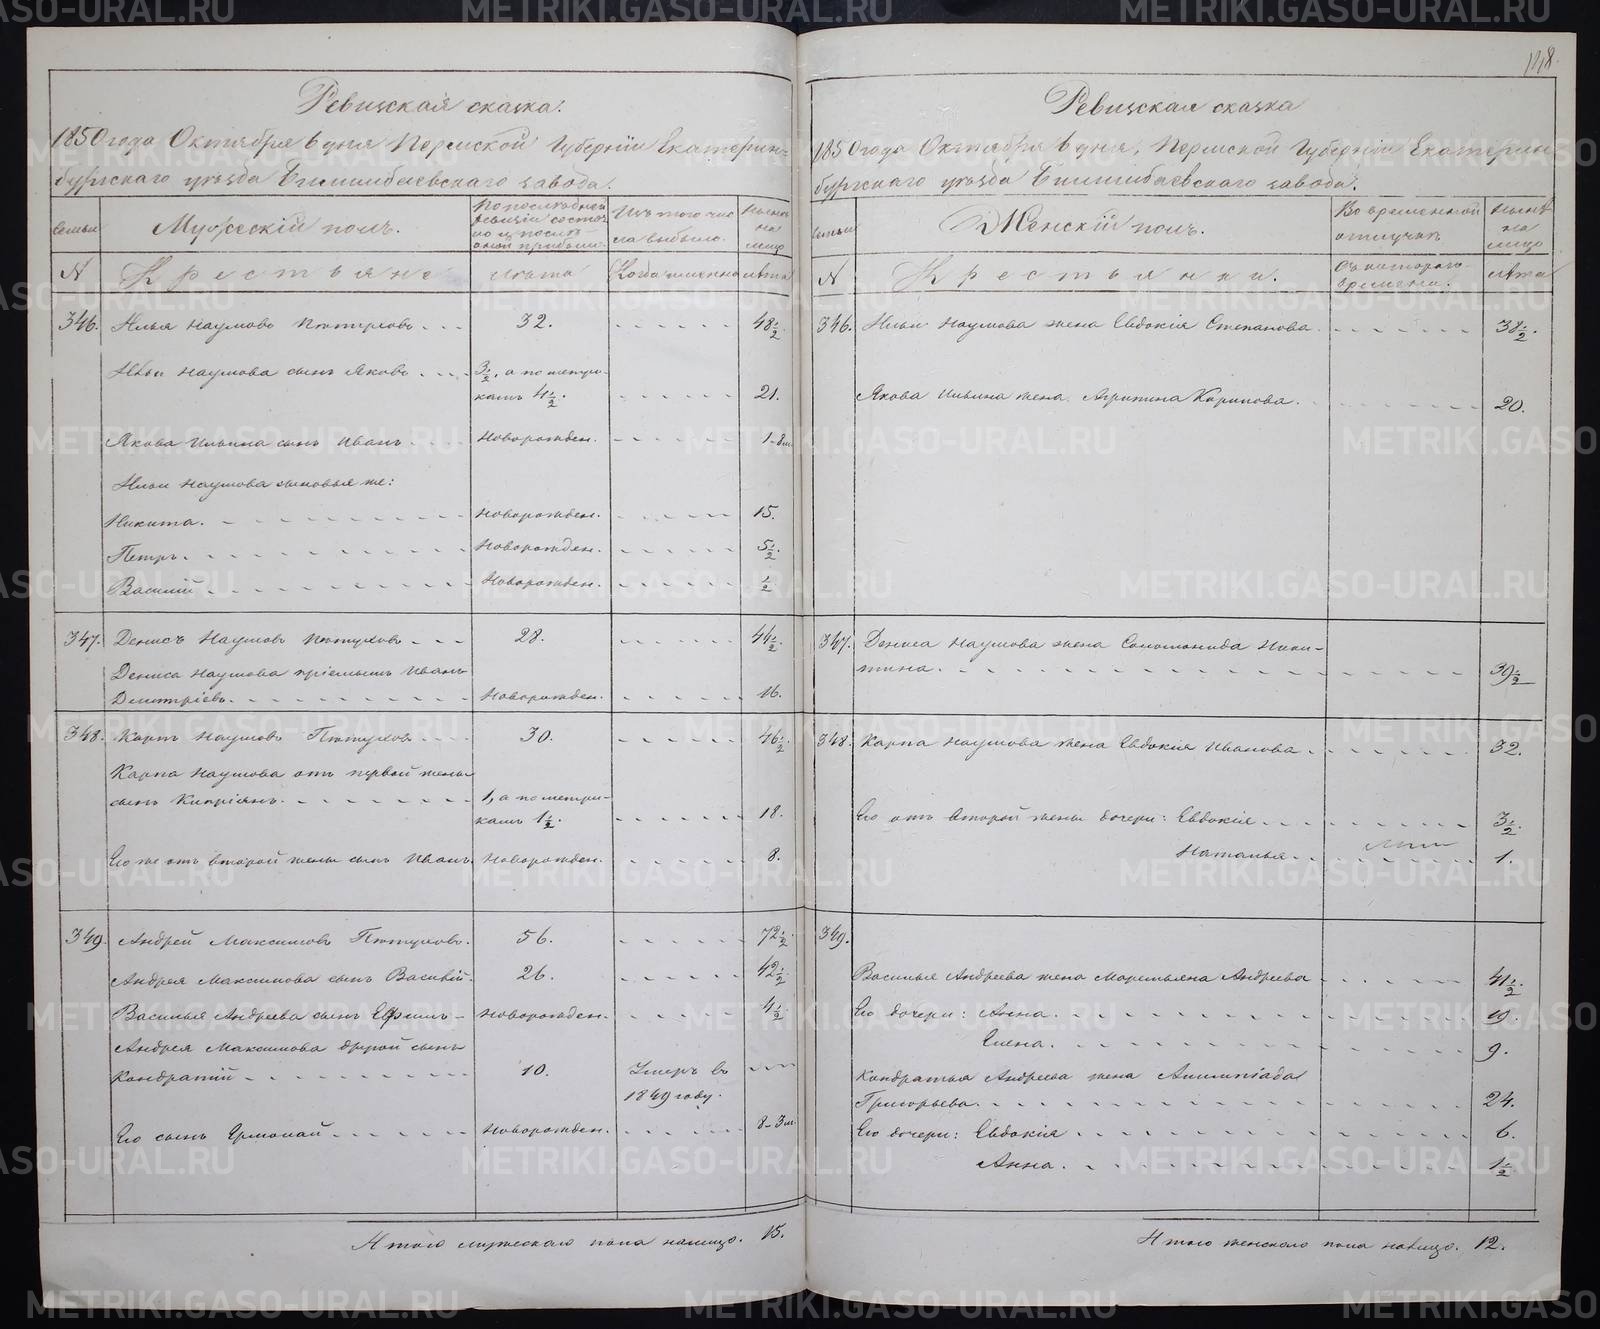 118.
Ревизская сказка.
1850 года Октября 6 дня Пермской Губернiи Екатерин-
бургскаго уѣзда Билимбаевскаго завода.
семьи
Мужескiй полъ.
По послѣдней ревизiи состояло и послѣ оной прибыло
Изъ того числа выбыло.
Нынѣ на лицо
№ Крестьяне лѣта Когда именно лѣта
346. Илья Наумовъ Пѣтуховъ 32. 48 1/2
Ильи Наумова сынъ Яковъ 3 1/2, а по метри-
камъ 4 1/2. 21.
Якова Ильина сынъ Иванъ Новорожден. 1-8 м.
Ильи Наумова сыновья же:
Никита. Новорожден. 15.
Петръ. Новорожден. 5 1/2
Василiй Новорожден. 1/2
347. Денисъ Наумовъ Пѣтуховъ 28. 44 1/2
Дениса Наумова прiемышъ Иванъ
Дмитрiевъ. Новорожден. 16.
348. Карпъ Наумовъ Пѣтуховъ 30. 46 1/2
Карпа Наумова отъ первой жены
сынъ Кипрiянъ. 1, а по метри-
камъ 1 1/2. 18.
Его же отъ второй жены сынъ Иванъ Новорожден. 8.
349. Андрей Максимовъ Пѣтуховъ. 56. 72 1/2
Андрея Максимова сынъ Василiй. 26. 42 1/2
Василья Андреева сынъ Ефимъ Новорожден. 4 1/2
Андрея Максимова другой сынъ
Кондратiй 10. Умеръ въ
1849 году.
Его сынъ Ермолай Новорожден. 8-3 м.
Итого мужескаго пола налицо. 15.
Ревизская сказка
1850 года Октября 6 дня, Пермской Губернiи Екатерин-
бургскаго уѣзда Билимбаевскаго завода.
семьи
Женскiй полъ.
Во временной отлучкѣ
Нынѣ на лицо
№ Крестьянки. Съ котораго времени. лѣта
346. Ильи Наумова жена Евдокiя Степанова 38 1/2.
Якова Ильина жена Агрипина Карпова. 20.
347. Дениса Наумова жена Соломонида Ники-
тина. 39 1/2
348. Карпа Наумова жена Евдокiя Иванова 32.
Его отъ второй жены дочери: Евдокiя 3 1/2.
Наталья 1.
349.
Василья Андреева жена Маремьяна Андреева 41 1/2.
Его дочери: Анна. 19.
Елена. 9.
Кондратья Андреева жена Алимпiада
Григорьева. 24.
Его дочери: Евдокiя 6.
Анна. 1 1/2
Итого женскаго пола налицо. 12.
METRIKI.GASO-URAL.RU